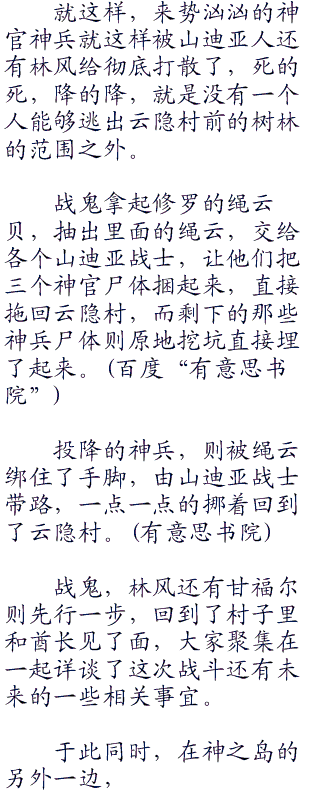 就这样，来势汹汹的神
官神兵就这样被山迪亚人还
有林风给彻底打散了，死的
死，降的降，就是没有一个
人能够逃出云隐村前的树林
的范围之外。
战鬼拿起修罗的绳云
贝，抽出里面的绳云，交给
各个山迪亚战士，让他们把
三个神官尸体捆起来，直接
拖回云隐村，而剩下的那些
神兵尸体则原地挖坑直接埋
了起来。（百度“有意思书
院”）
投降的神兵，则被绳云
绑住了手脚，由山迪亚战士
带路，一点一点的挪着回到
了云隐村。（有意思书院）
战鬼，林风还有甘福尔
则先行一步，回到了村子里
和酋长见了面，大家聚集在
一起详谈了这次战斗还有未
来的一些相关事宜。
于此同时，在神之岛的
另外一边，